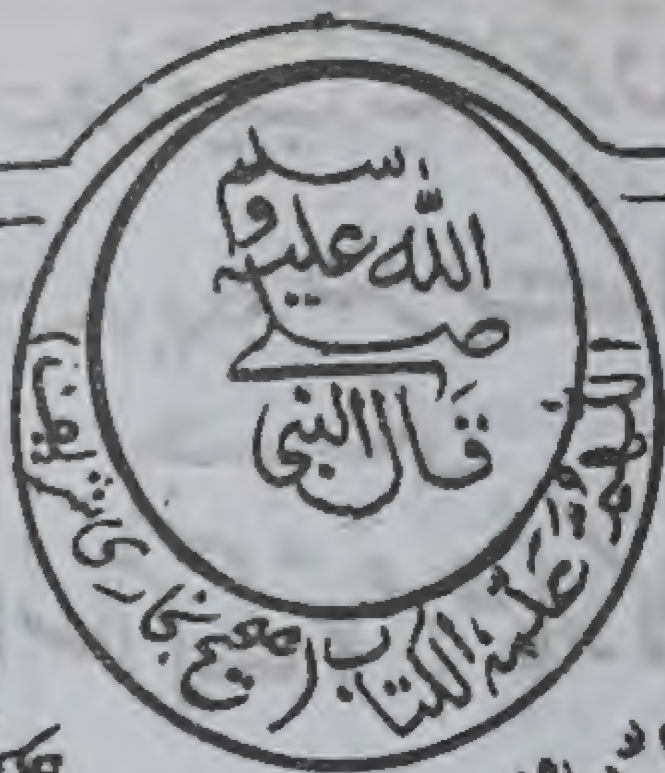 قَال النبی
صلے
اللّٰه علیہ
و سلم
اللّٰهم علمه الکتاب (صحیح بخاری شریف)